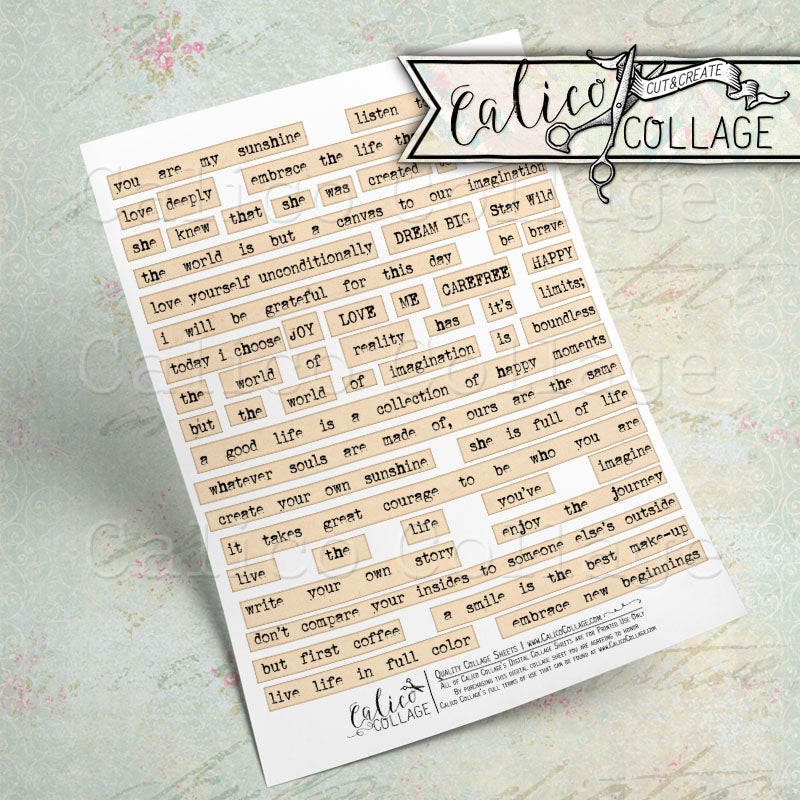 Calico
COLLAGE
CUT & CREATE
you are my sunshine listen
love deeply embrace the life
she knew that she was created
the world is but a canvas to our imagination
love yourself unconditionally DREAM BIG Stay Wild
i will be grateful for this day be brave
today i choose JOY LOVE ME CAREFREE HAPPY
the world of reality has it's limits;
but the world of imagination is boundless
a good life is a collection of happy moments
whatever souls are made of, ours are the same
create your own sunshine she is full of life
it takes great courage to be who you are
live the life you've imagine
write your own story enjoy the journey
don't compare your insides to someone else's outside
but first coffee a smile is the best make-up
live life in full color embrace new beginnings
Calico
COLLAGE
Quality Collage Sheets | www.CalicoCollage.com
All of Calico Collage's Digital Collage Sheets are for Printed Use Only
By purchasing this digital collage sheet you are agreeing to honor
Calico Collage's full terms of use that can be found at www.CalicoCollage.com
Calico Collage
Calico Collage
Calico Collage